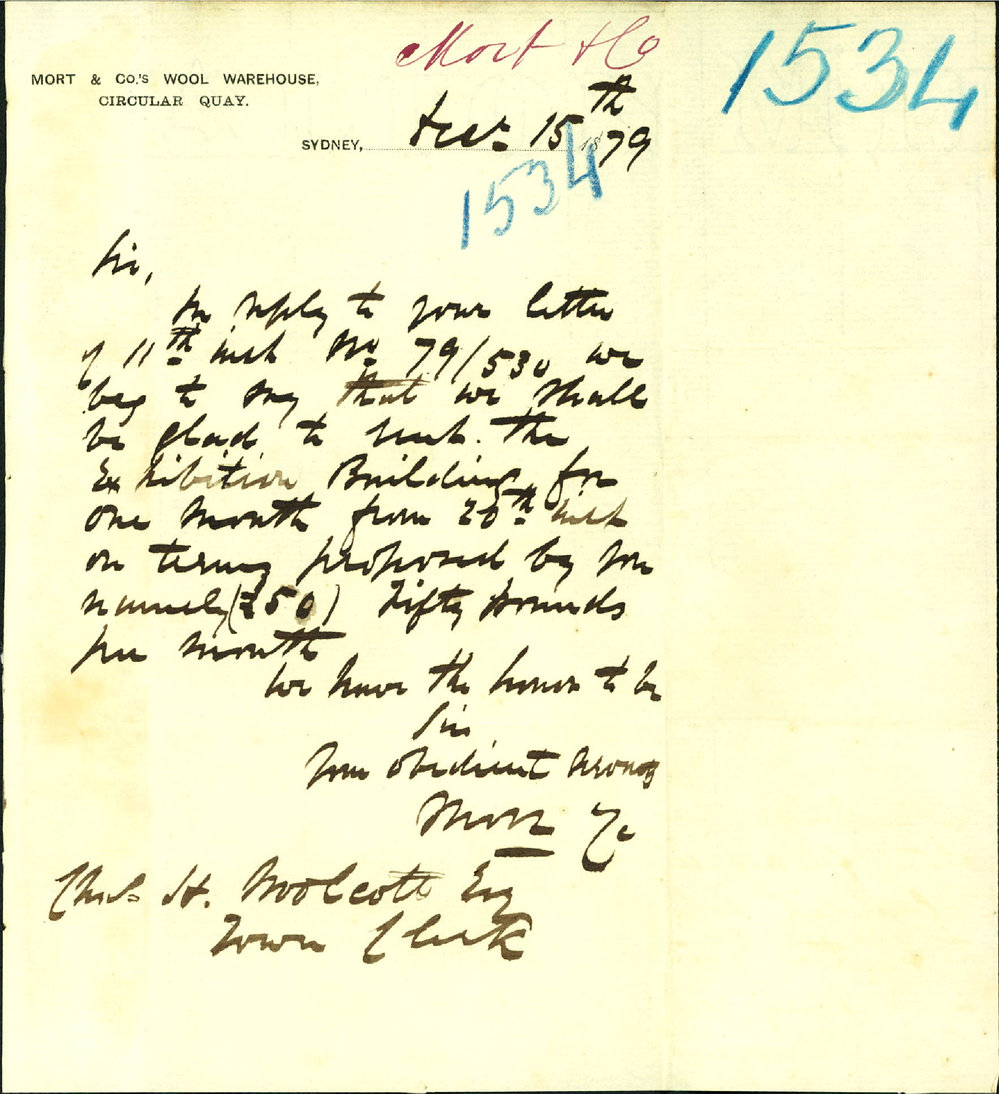 Mort & Co
1534
MORT & CO.'S WOOL WAREHOUSE,
CIRCULAR QUAY.
SYDNEY, 15th 1879
1534
Sir,
In reply to your letter
of 11th inst No 79/530 we
beg to say that we shall
be glad to rent the
Exhibition Building for
one month from 20th inst
on terms proposed by you
namely (£50) Fifty pounds
per month
We have the honor to be
Sir
Your obedient servants
Mort & Co
Chas H. Woolcott Esq
Town Clerk